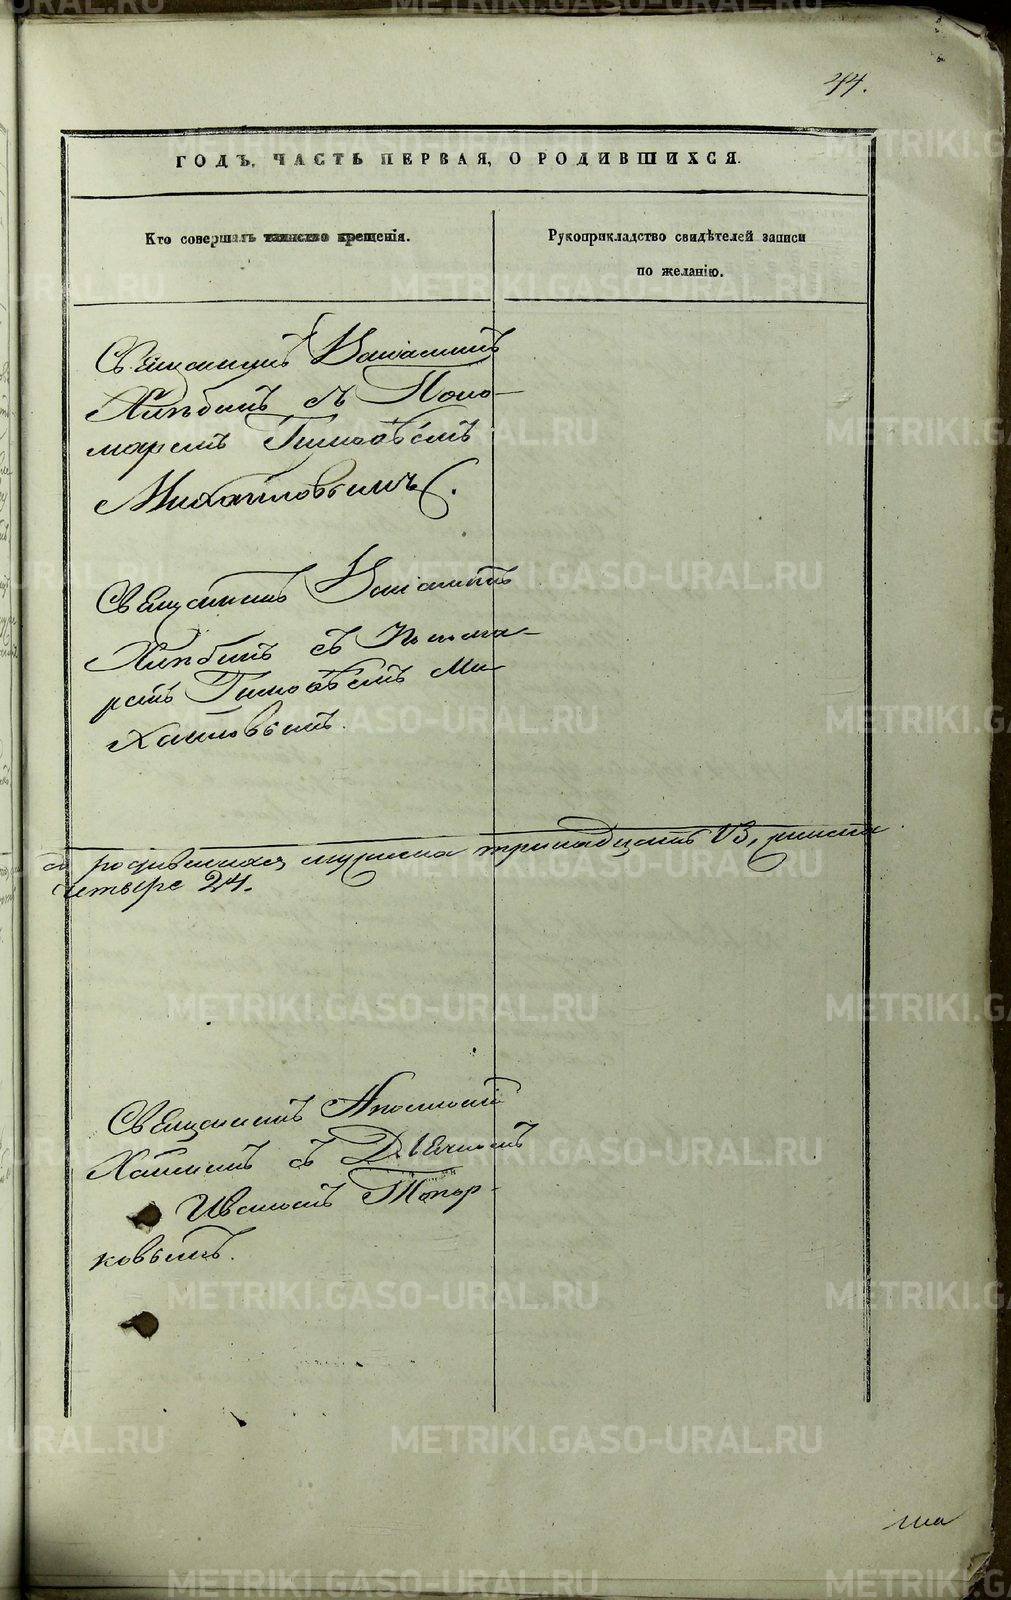 44.
ГОДЪ, ЧАСТЬ ПЕРВАЯ, О РОДИВШИХСЯ.
Кто совершалъ таинство крещенія.
Рукоприкладство свидѣтелей записи
по желанію.
Священникъ
Хлѣбинъ съ Поно-
маремъ Тимоѳѣемъ
Михайловымъ.
Священникъ
Хлѣбинъ съ Понома-
ремъ Тимоѳѣемъ Ми
хайловымъ.
родившихся мужеска тринадцать 13,
четыре 24.
Священникъ Аполлоній
съ Дьячкомъ
Иваномъ Топор-
ковымъ.
METRIKI.GASO-URAL.RU